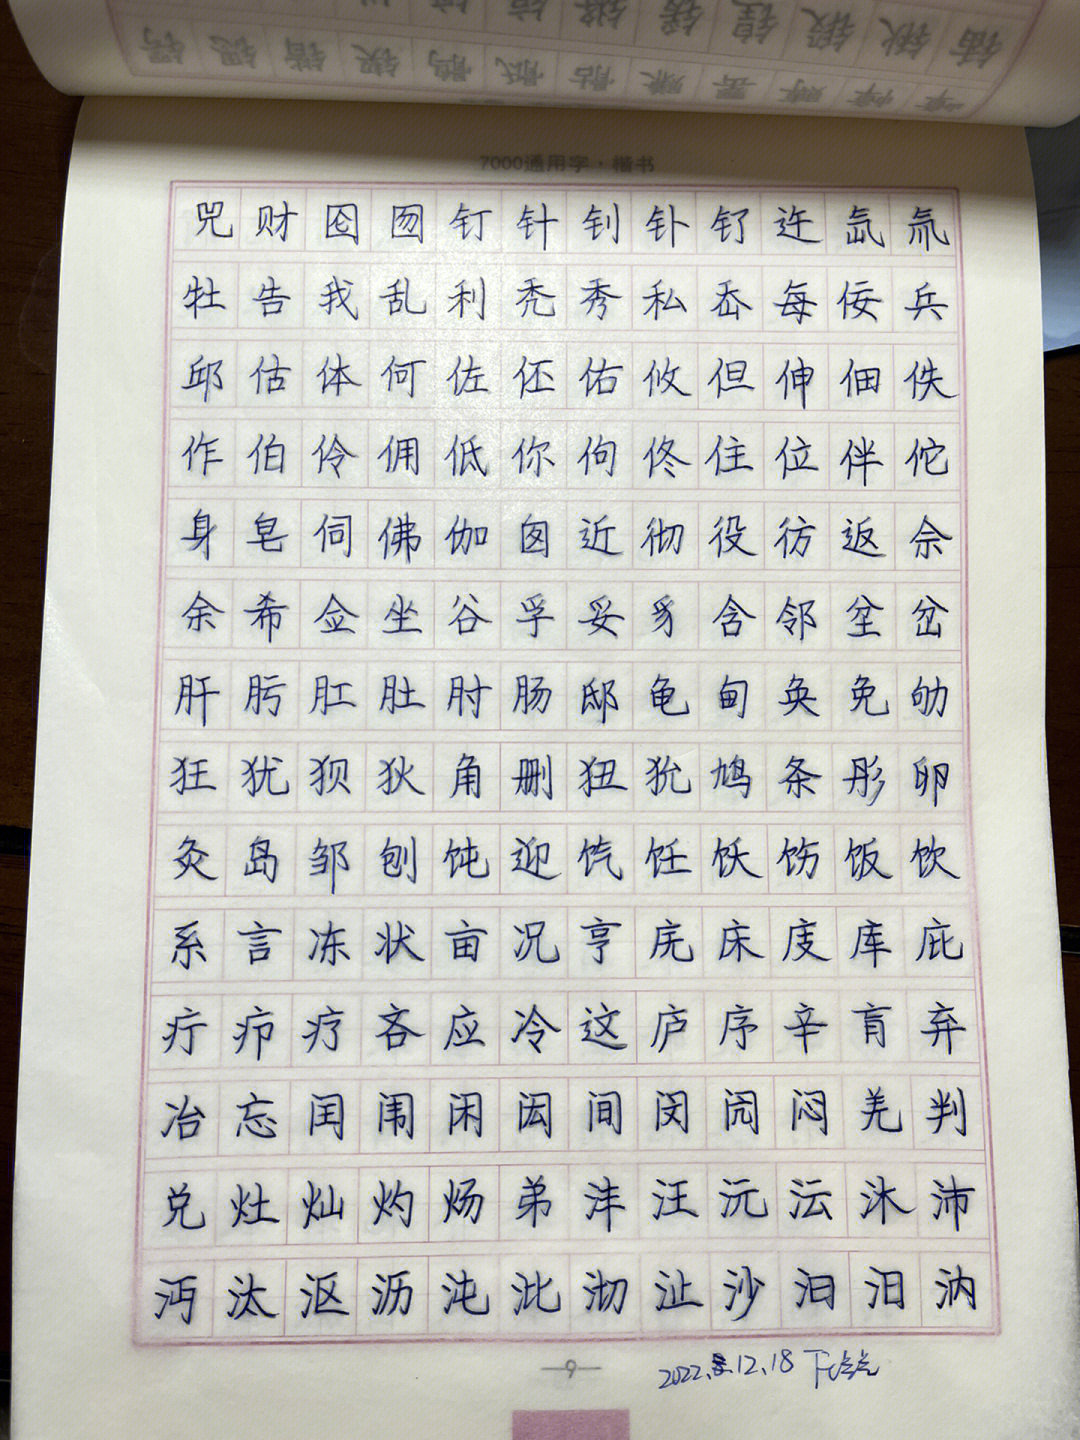 7000通用字·楷书
咒财囵囫钉针钊钋钌迕氙氚
牡告我乱利秃秀私岙每佞兵
邱估体何佐伾佑攸但伸佃佚
作伯伶佣低你佝佟住位伴佗
身皂伺佛伽囱近彻役彷返佘
余希佥坐谷孚妥豸含邻坌岔
肝肟肛肚肘肠邸龟甸奂免劬
狂犹狈狄角删狃狁鸠条彤卵
灸岛邹刨饨迎饩饪饫饬饭饮
系言冻状亩况亨庑床庋库庇
疔疖疗吝应冷这庐序辛肓弃
冶忘闰闱闲闳间闵闶闷羌判
兑灶灿灼炀弟沣汪沅沄沐沛
沔汰沤沥沌沘沏沚沙汩汨汭
—9—
2022.12.18